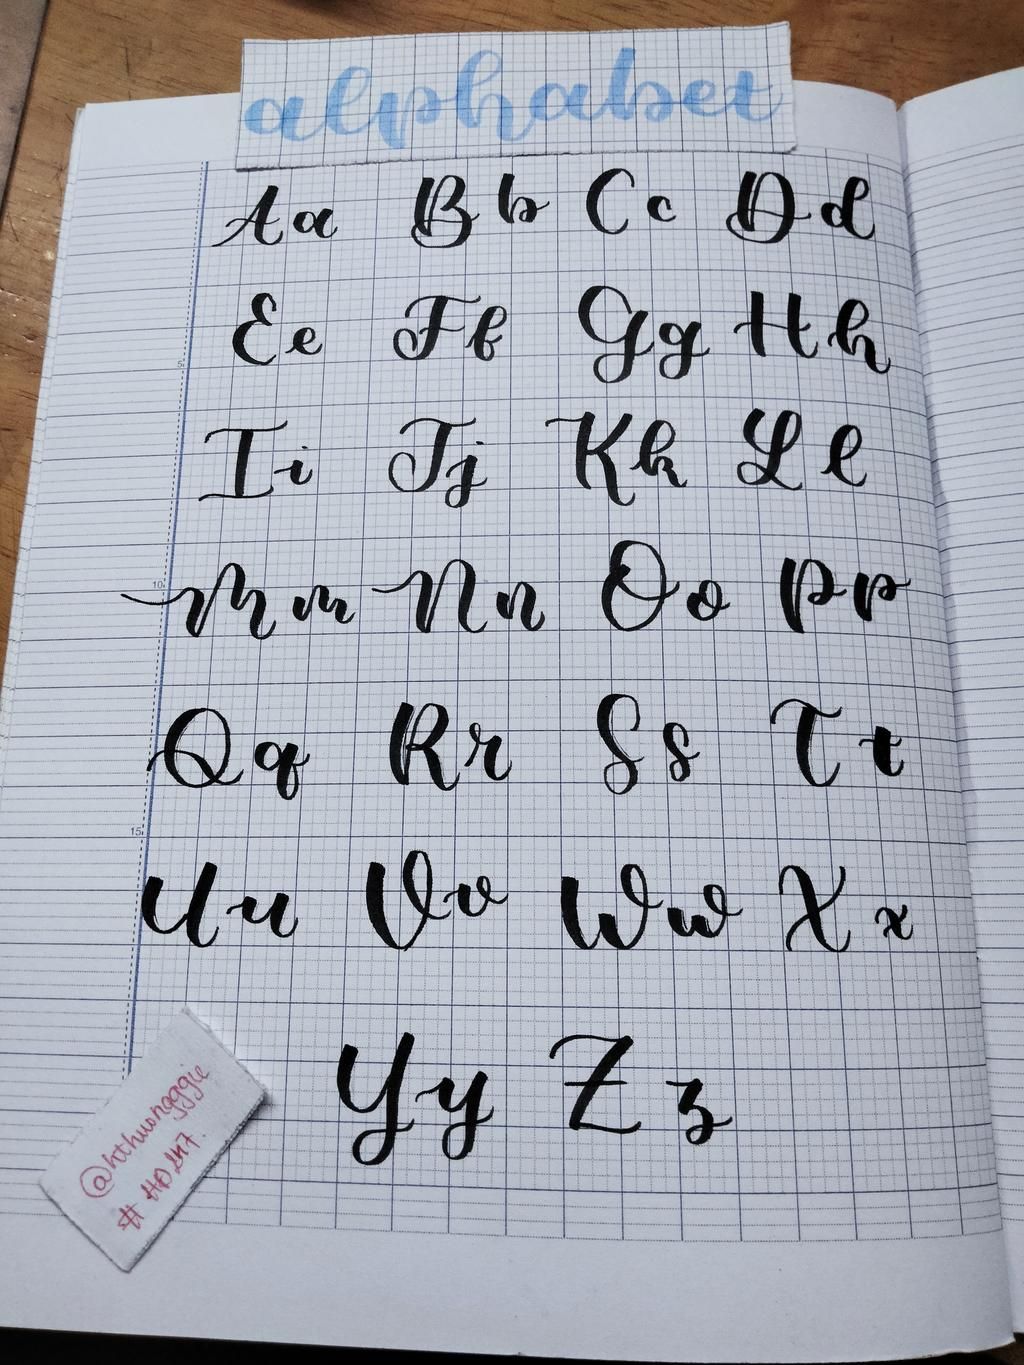 alphabet
Aa Bb Cc Dd
Ee Ff Gg Hh
5
Ii Jj Kk Ll
10
Mm Nn Oo Pp
Qq Rr Ss Tt
15
Uu Vv Ww Xx
Yy Zz
#HD247